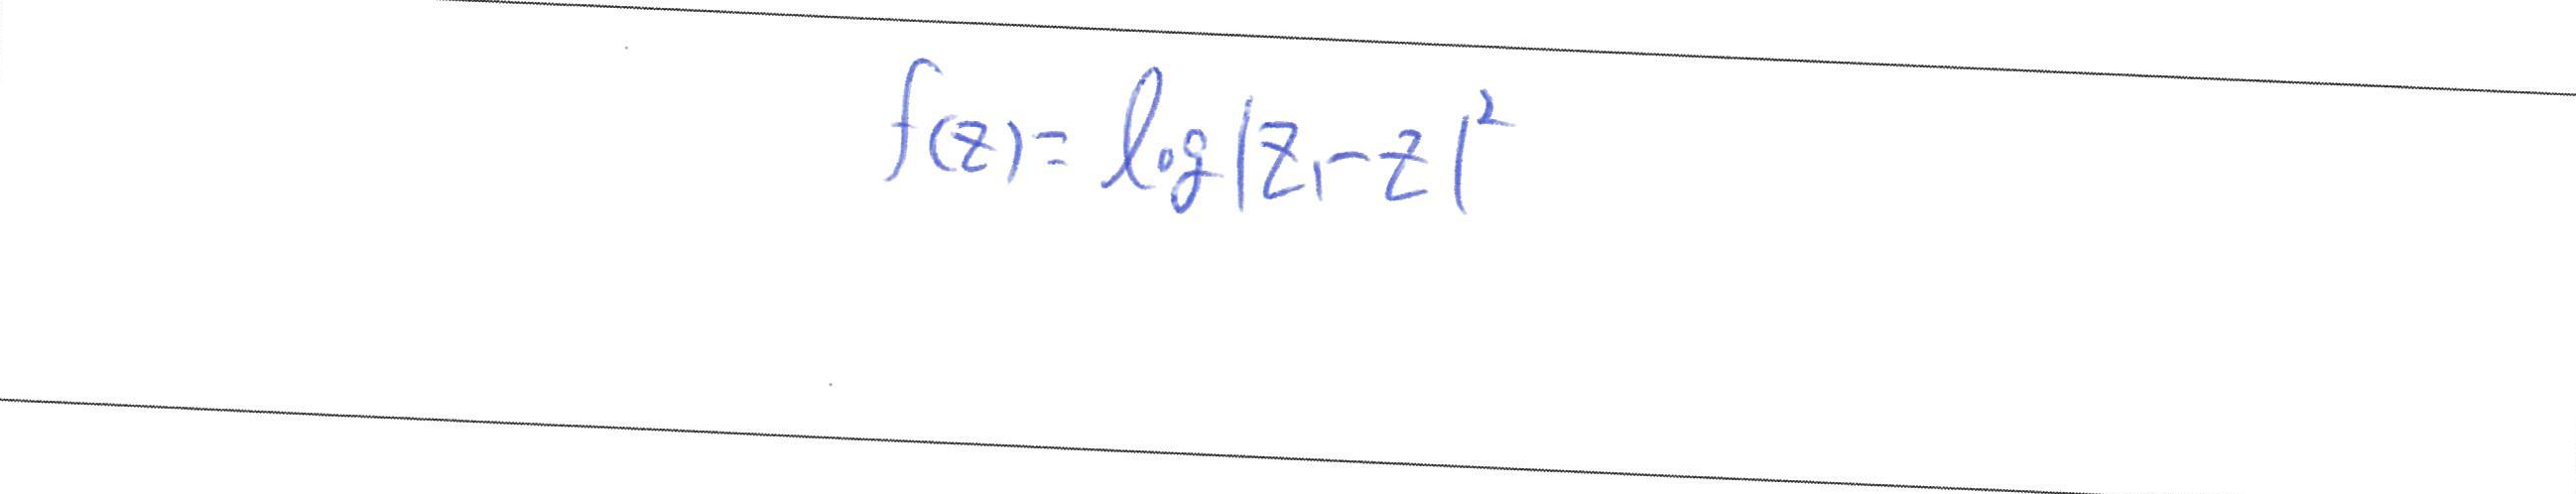 f(z) = log|z₁-z|²